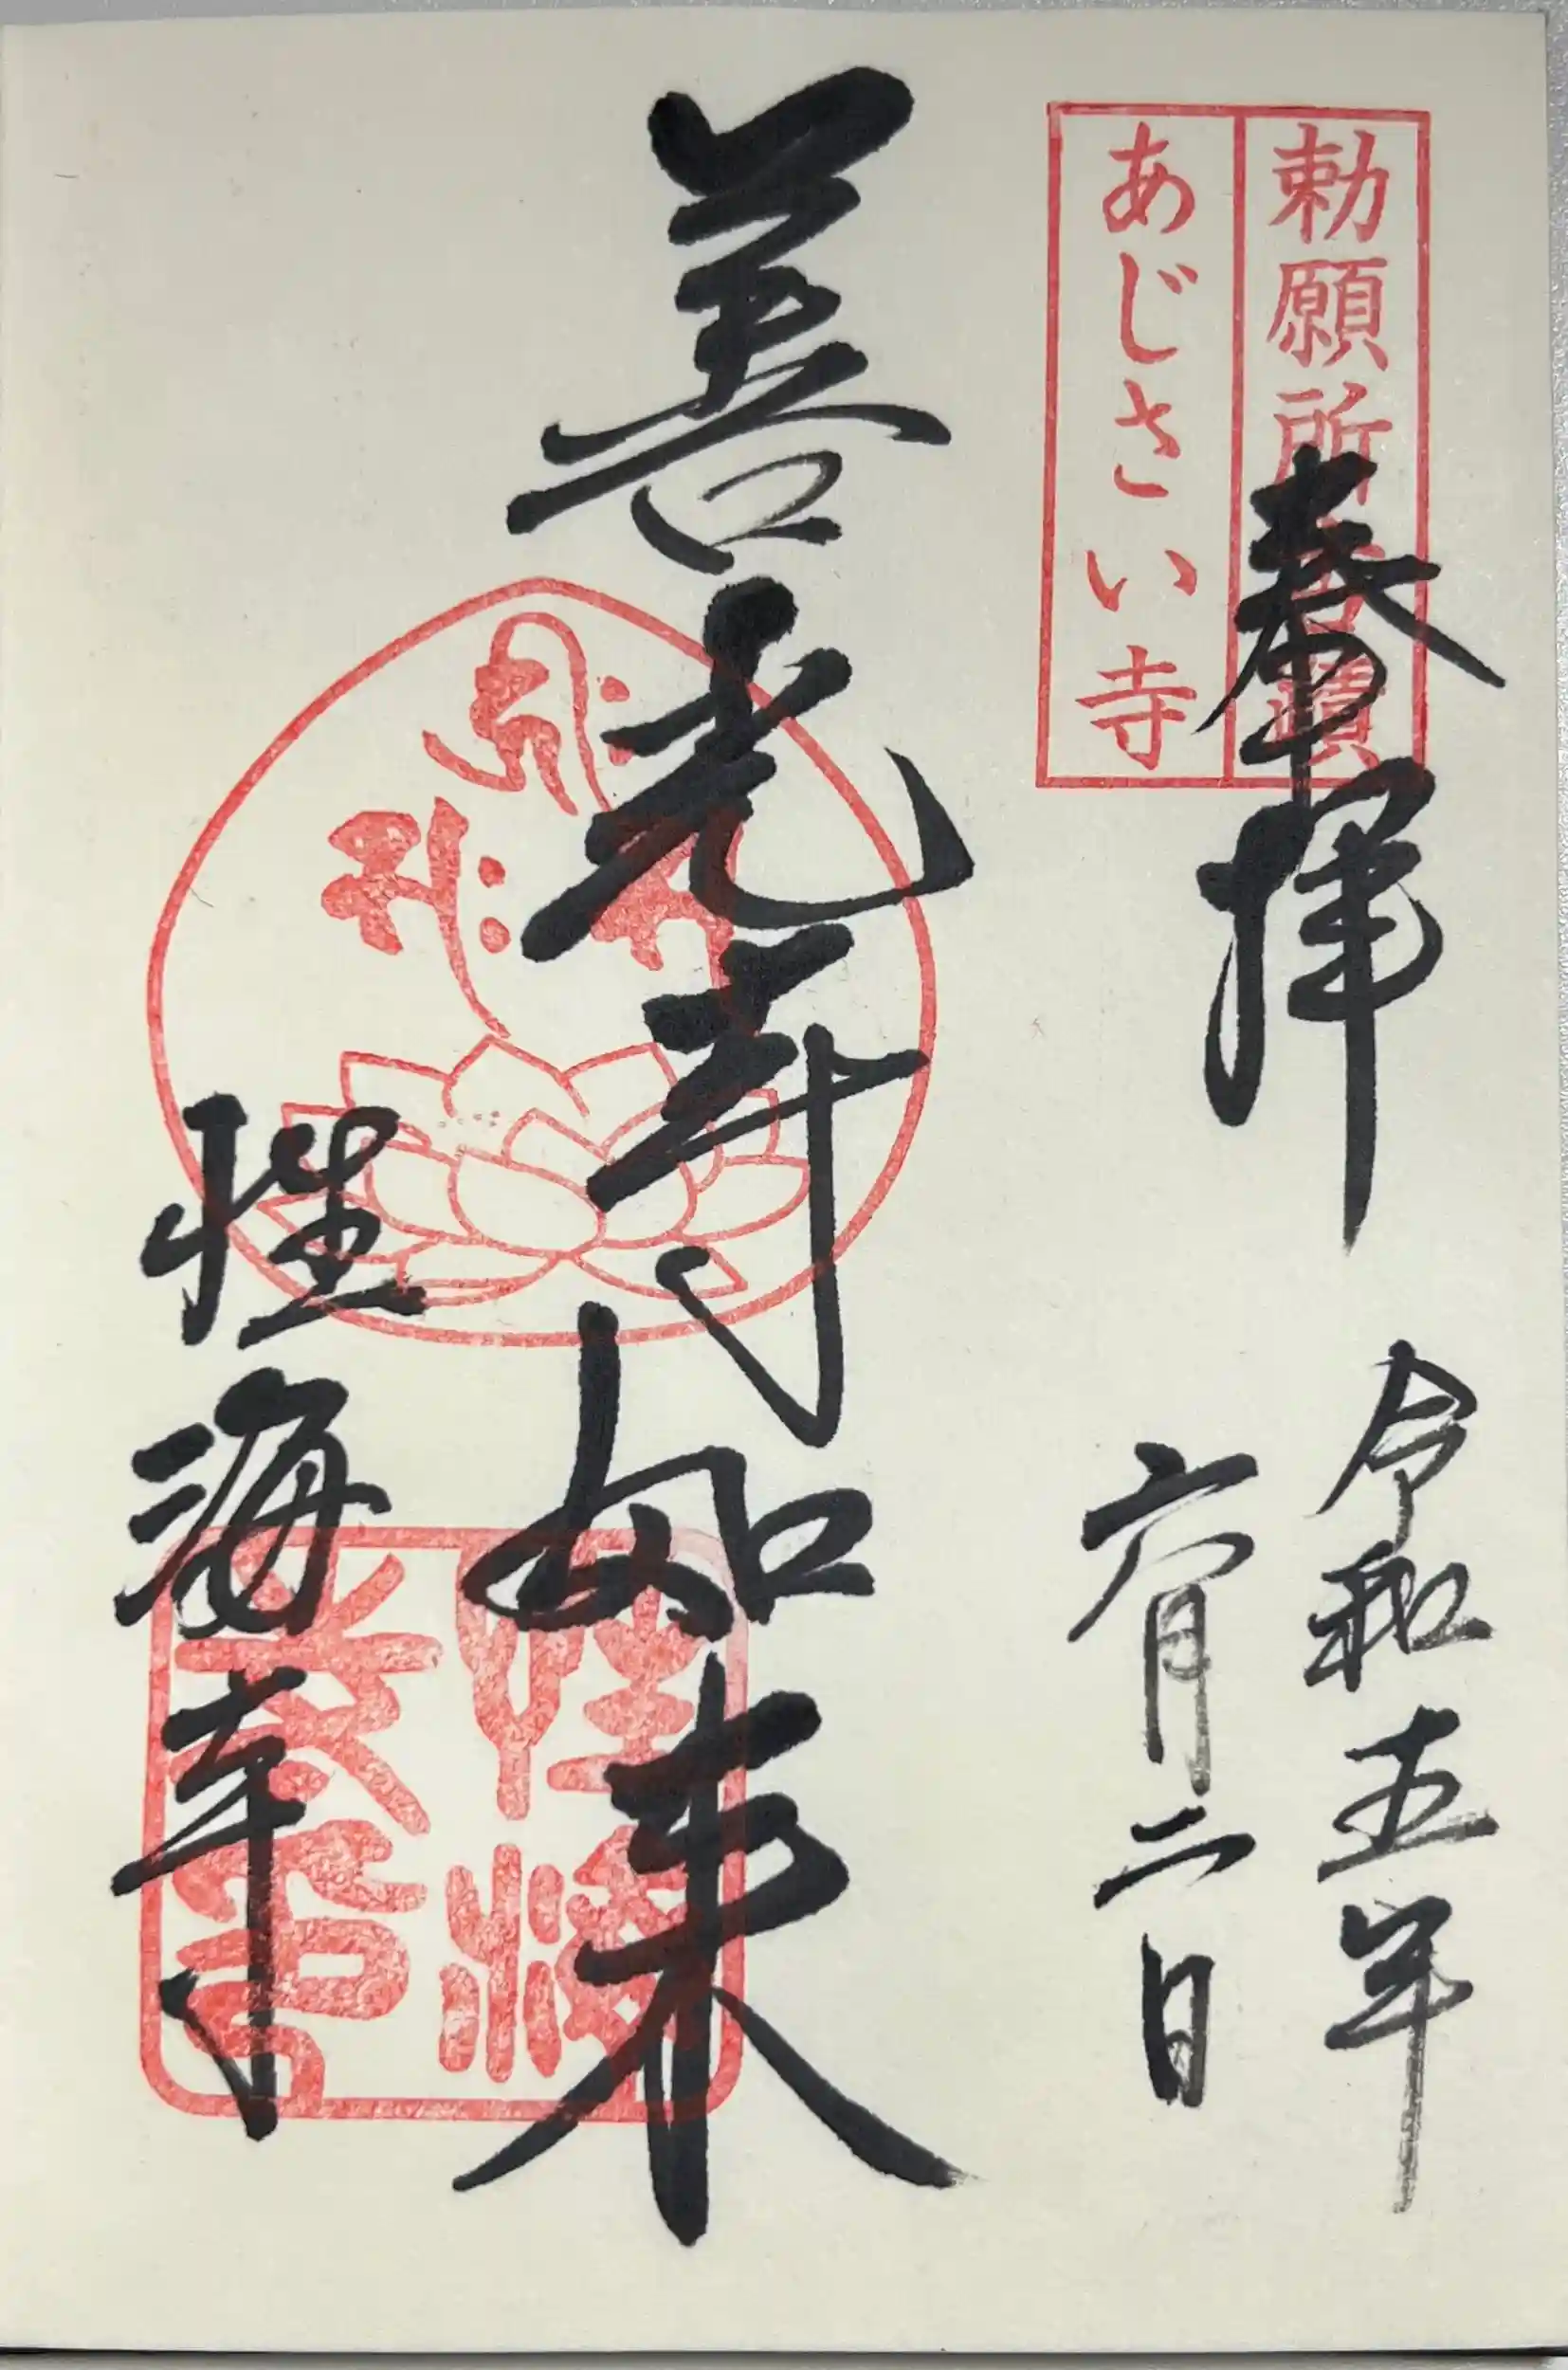 勅願所
あじさい寺
奉拝
令和五年
六月二日
善光寺如来
性海寺